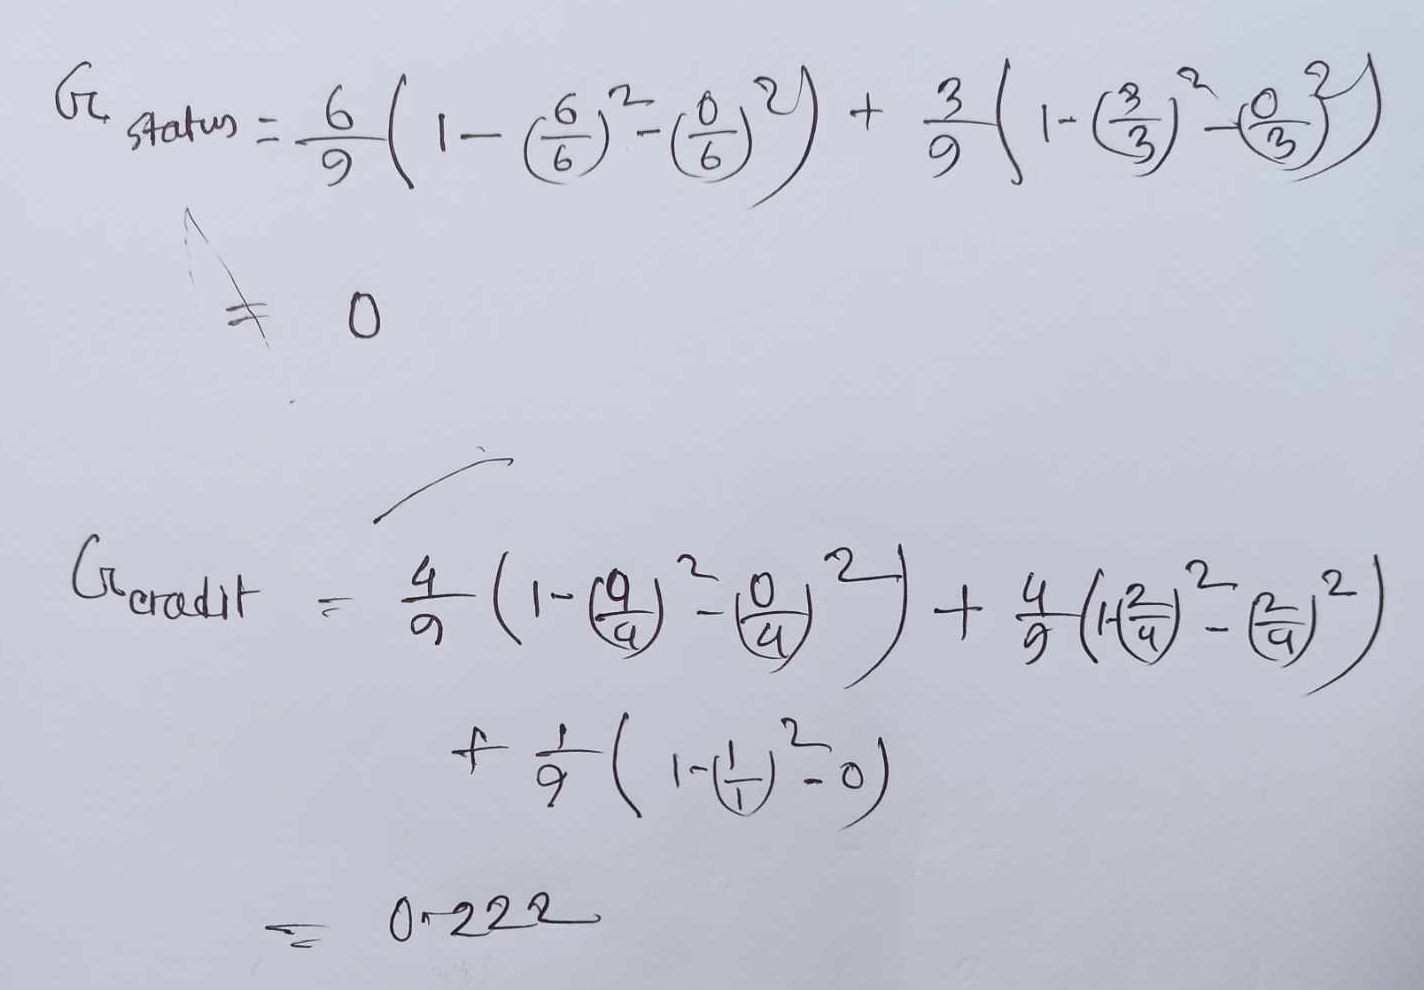 G status = 6/9 ( 1 - (6/6)² - (0/6)² ) + 3/9 ( 1 - (3/3)² - (0/3)² )
= 0
G credit = 4/9 ( 1 - (4/4)² - (0/4)² ) + 4/9 ( 1 - (2/4)² - (2/4)² )
+ 1/9 ( 1 - (1/1)² - 0 )
= 0.222